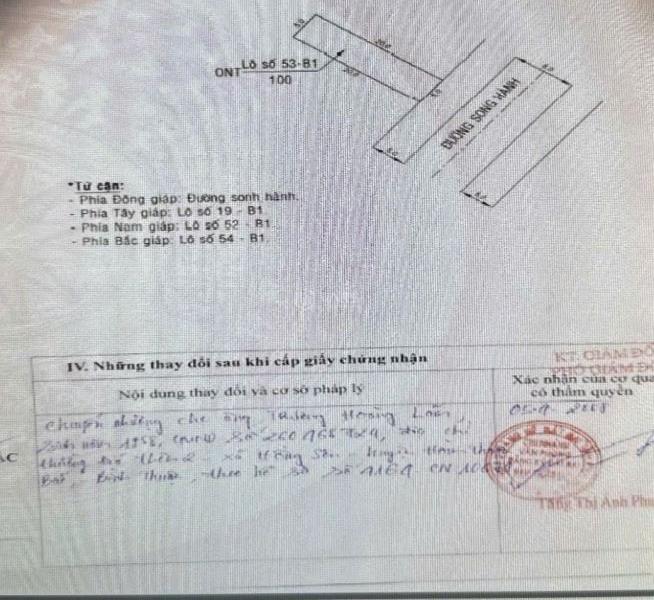 5.0
20.0
ONT Lô số 53-B1
100
20.0
5.0
ĐƯỜNG SONG HÀNH
6.0
6.0
*Tứ cận:
- Phía Đông giáp: Đường sonh hành.
- Phía Tây giáp: Lô số 19 - B1.
- Phía Nam giáp: Lô số 52 - B1
- Phía Bắc giáp: Lô số 54 - B1.
IV. Những thay đổi sau khi cấp giấy chứng nhận
KT. GIÁM ĐỐ
PHÓ GIÁM Đ
Nội dung thay đổi và cơ sở pháp lý
Xác nhận của cơ qua
có thẩm quyền
Chuyển nhượng cho ông Trương Hoàng
sinh năm 1958, số địa chỉ
thường trú thôn 2 - xã Hồng Sơn - huyện Hàm
Bắc - Bình Thuận, theo hồ sơ số
ẮC
Tăng Thị Anh